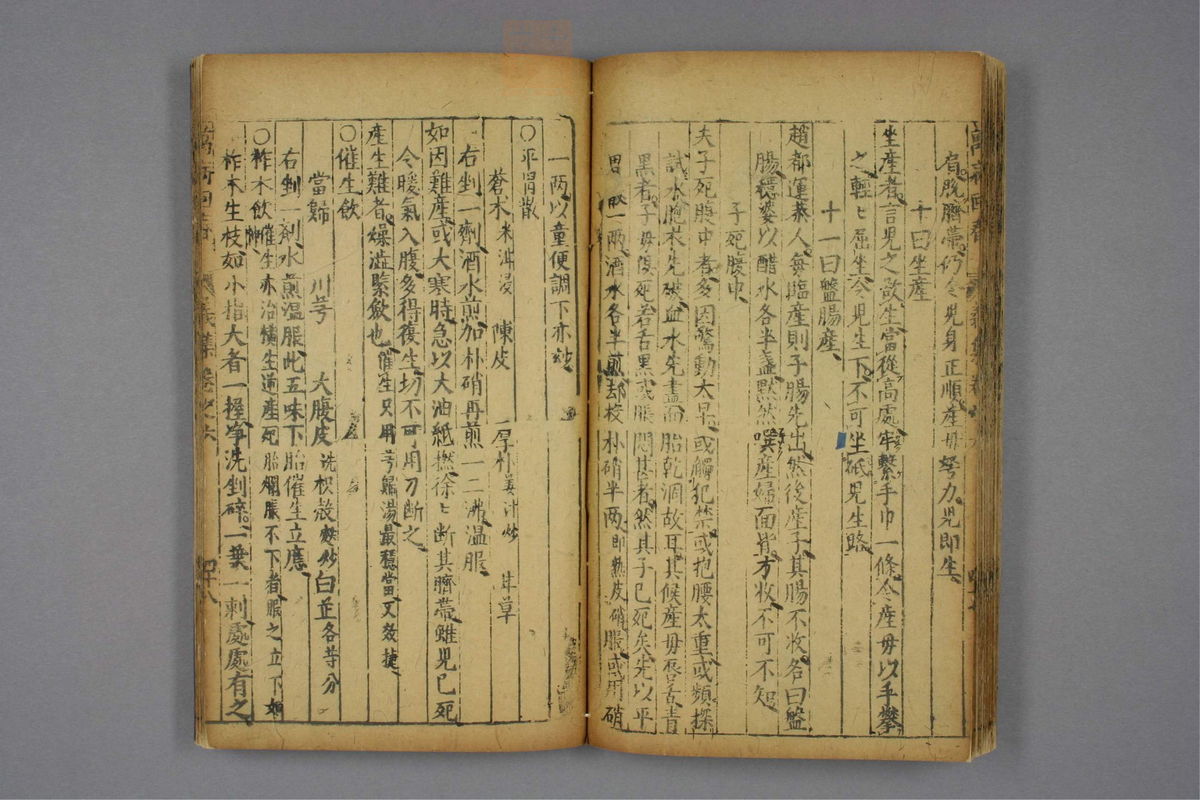 肩脫臍帶仍令兒身正順產母努力兒即生
十曰坐產
坐產者言兒之欲生當從高處牢繫手巾一條令產母以手攀
之輕匕屈坐令兒生下不可坐砥兒生路
十一曰盤腸產
趙都運恭人每臨產則子腸先出然後產子其腸不收名曰盤
腸穩婆以醋水各半盞默然噀產婦面背方收不可不知
子死腹中
夫子死腹中者多因驚動太早或觸犯禁或抱腰太重或頻探
試水胞衣先破血水先盡而胎乾涸故耳其候產母唇舌青
黑者子母俱死若舌黑或脹悶甚者然其子已死矣先以平
胃散一兩酒水各半煎却投朴硝半兩即熱皮硝服或用硝
一兩以童便調下亦妙
○平胃散
蒼朮米泔浸 陳皮 厚朴姜汁炒 甘草
右剉一劑酒水煎加朴硝再煎一二沸溫服
如因難產或大寒時急以大油紙撚徐匕斷其臍帶雖兒已死
令暖氣入腹多得復生切不可用刀斷之
產生難者燥澁緊斂也催生只用芎歸湯最穩當又效捷
○催生飲
當歸 川芎 大腹皮洗 枳殼麩炒 白芷各等分
右剉一劑水煎溫服此五味下胎催生立應
○柞木飲催生亦治橫生逆產死胎爛脹不下者服之立下如神
柞木生枝如小指大者一握淨洗剉碎一葉一刺處處有之
萬病回春 義集卷之六 四十八